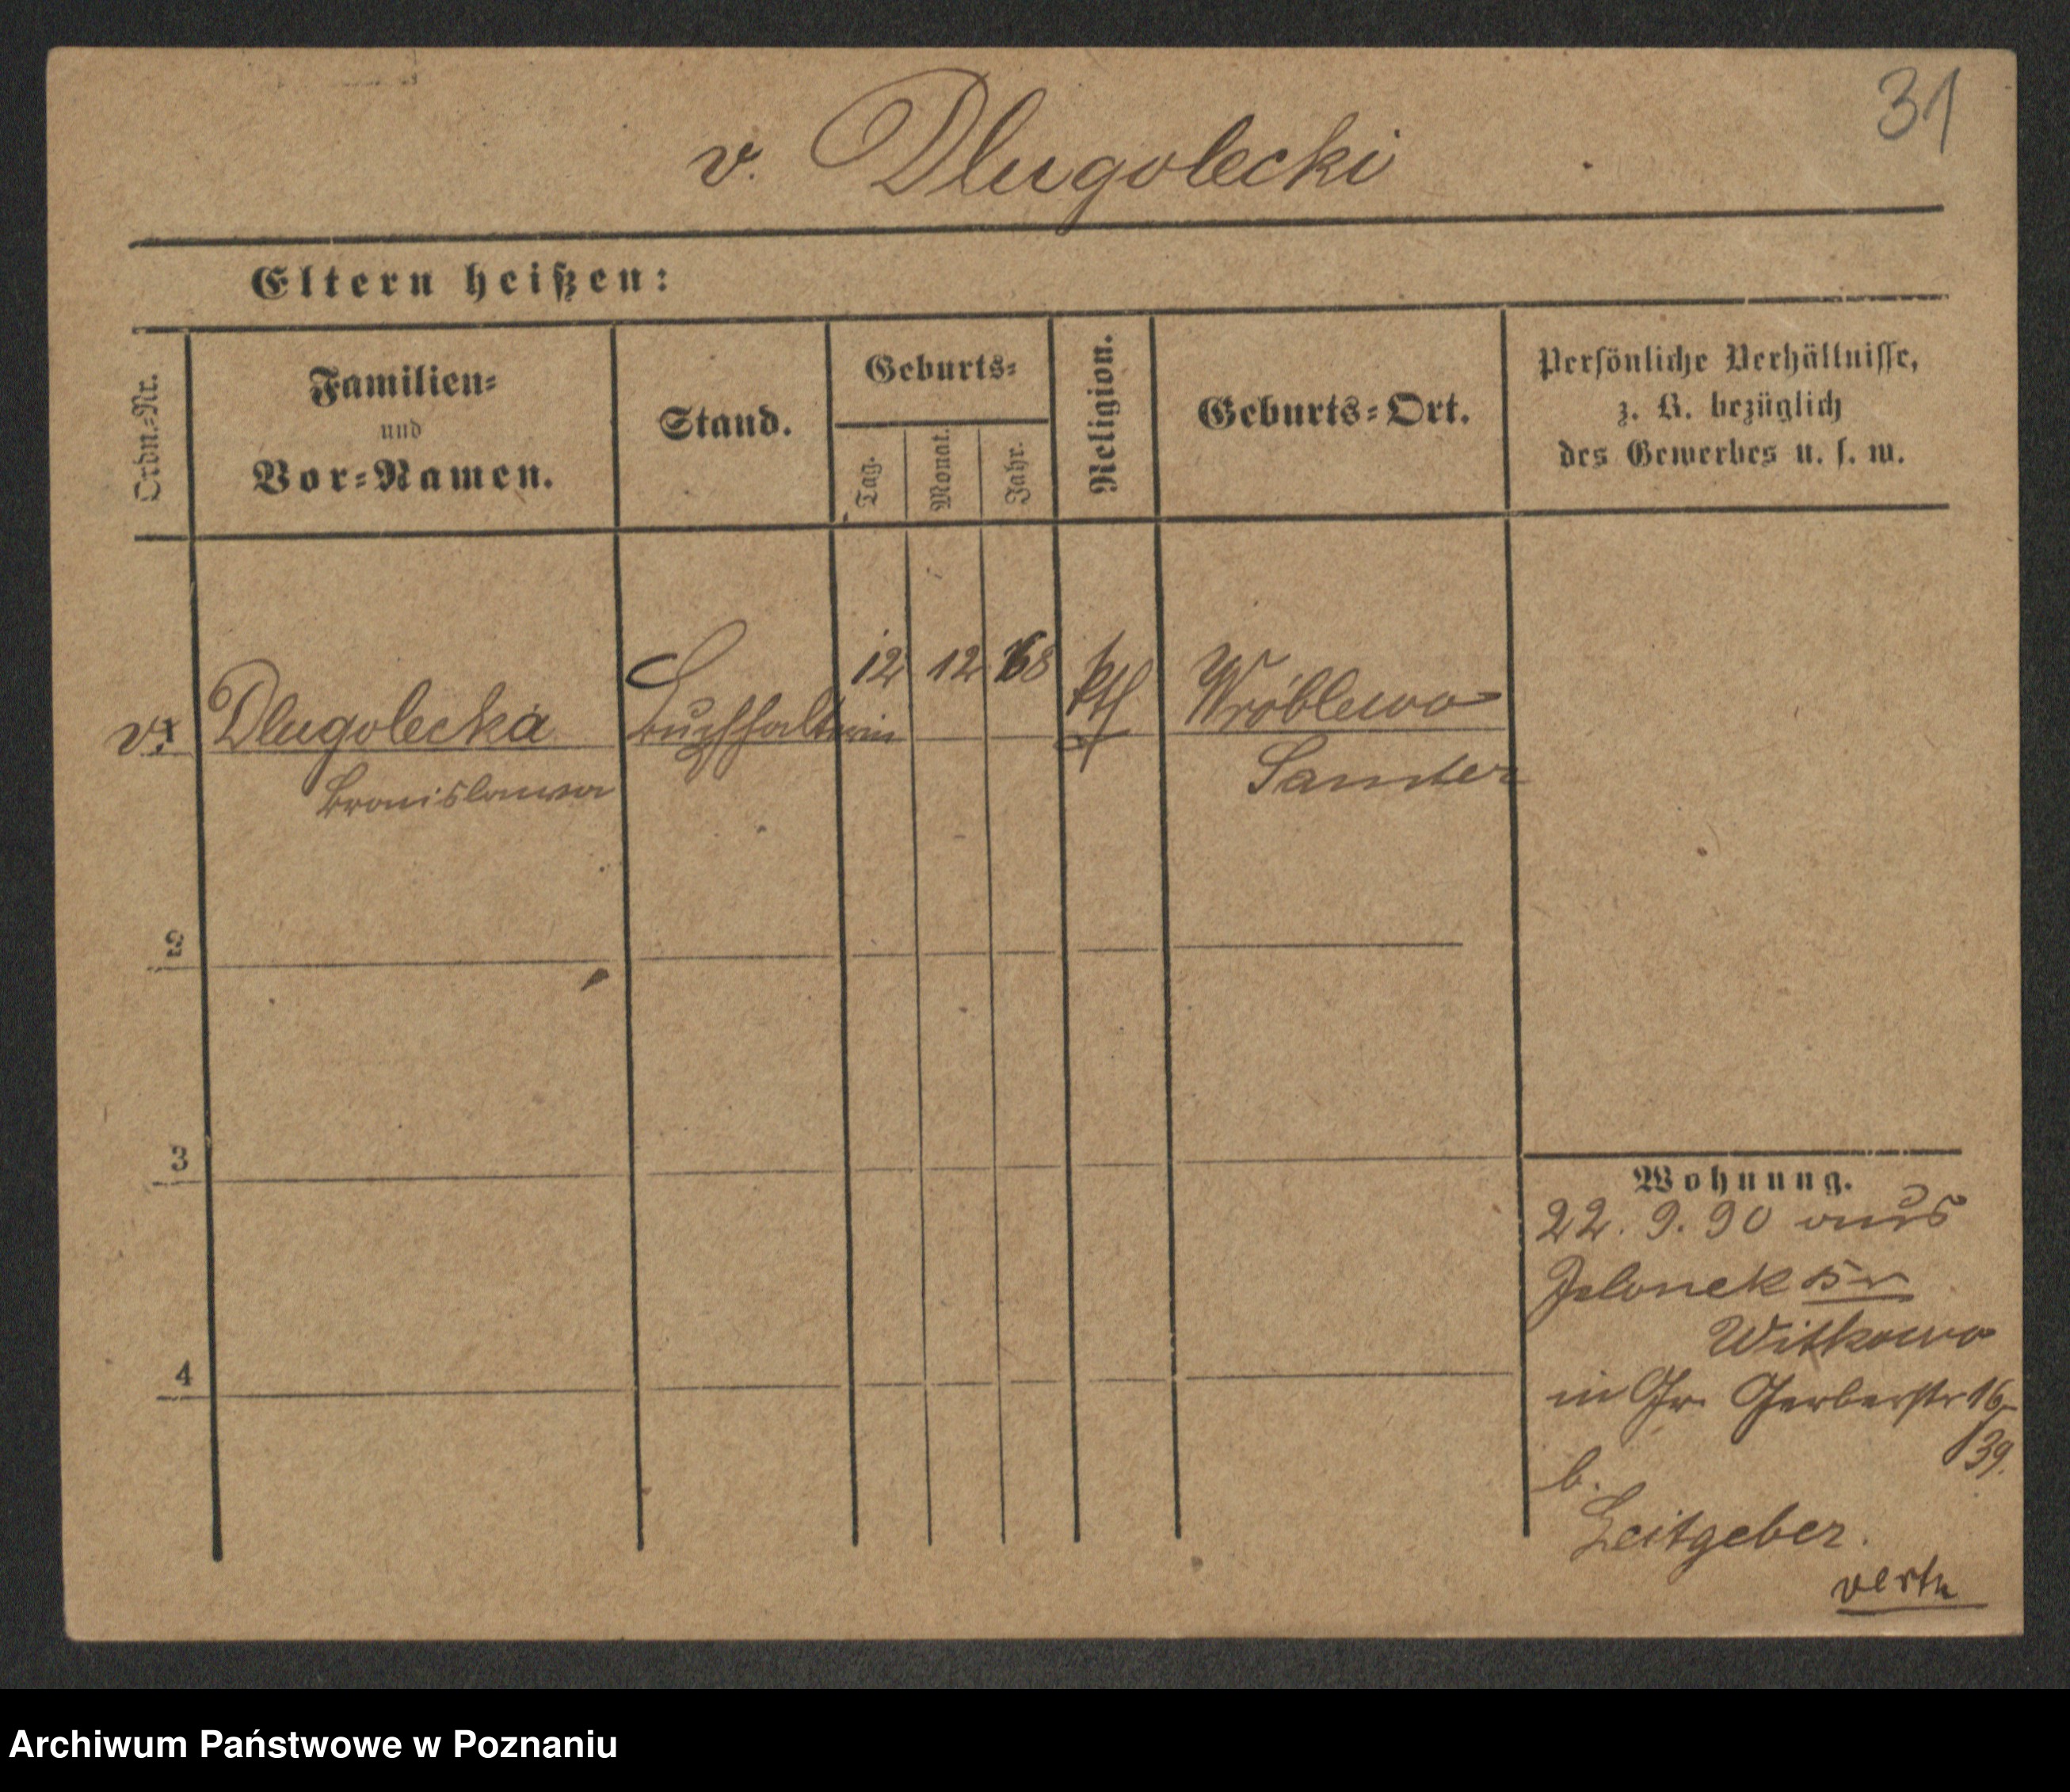 31
v. Dlugolecki
Eltern heißen:
Ordn.-Nr.
Familien-
und
Vor-Namen.
Stand.
Geburts-
Tag.
Monat.
Jahr.
Religion.
Geburts-Ort.
Persönliche Verhältnisse,
z. B. bezüglich
des Gewerbes u. s. w.
v. Dlugolecka Buchhalterin 12 12 68 kth Wróblewo
Bronislawa Samter
2
3
4
Wohnung.
22. 9. 90 aus
Jelonek
Witkowo
in Gr. Gerberstr 16
/39.
b.
Leitgeber.
Archiwum Państwowe w Poznaniu